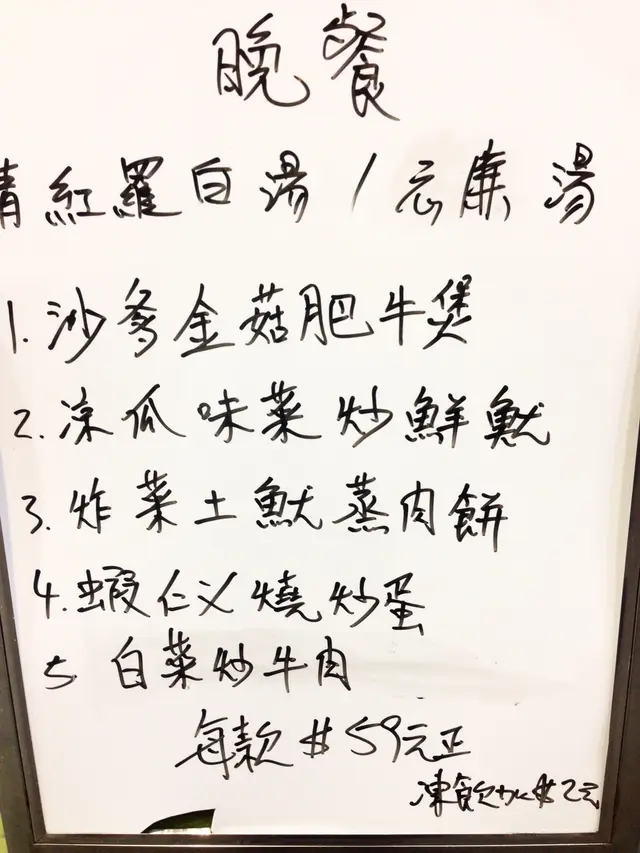 晚餐
青紅羅白湯 / 忌廉湯
1. 沙爹金菇肥牛煲
2. 凉瓜味菜炒鮮魷
3. 炸菜土魷蒸肉餅
4. 蝦仁义燒炒蛋
5. 白菜炒牛肉
每款 $59元正
凍飲加$2元